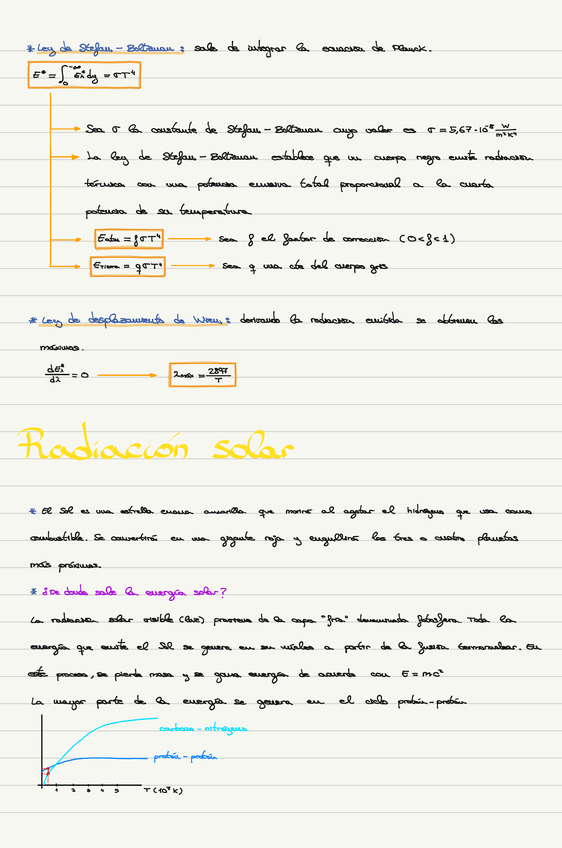 * Ley de Stefan - Boltzman : sale de integrar la ecuación de Planck.
E* = ∫₀^∞ Eλ* dy = σT⁴
Sea σ la constante de Stefan - Boltzman cuyo valor es σ = 5,67 · 10⁻⁸ W/m²K⁴
La ley de Stefan - Boltzman establece que un cuerpo negro emite radiación
térmica con una potencia emisiva total proporcional a la cuarta
potencia de su temperatura.
= fσT⁴ → Sea f el factor de corrección (0<f<1)
ETierra = qσT⁴ → Sea q una cte del cuerpo gris
* Ley de desplazamiento de Wien : derivando la radiación emitida se obtienen los
máximos.
dEλ*/dλ = 0 → λmáx = 2897/T
Radiación solar
* El Sol es una estrella enana amarilla que morirá al agotar el hidrógeno que usa como
combustible. Se convertirá en una gigante roja y engullirá los tres o cuatro planetas
más próximos.
* ¿De donde sale la energía solar?
La radiación solar visible (luz) proviene de la capa "fría" denominada fotosfera. Toda la
energía que emite el Sol se genera en su núcleo a partir de la fusión termonuclear. En
este proceso, se pierde masa y se gana energía de acuerdo con E = mc²
La mayor parte de la energía se genera en el ciclo protón - protón
carbono - nitrógeno
protón - protón
1 2 3 4 5 T (10⁷ K)